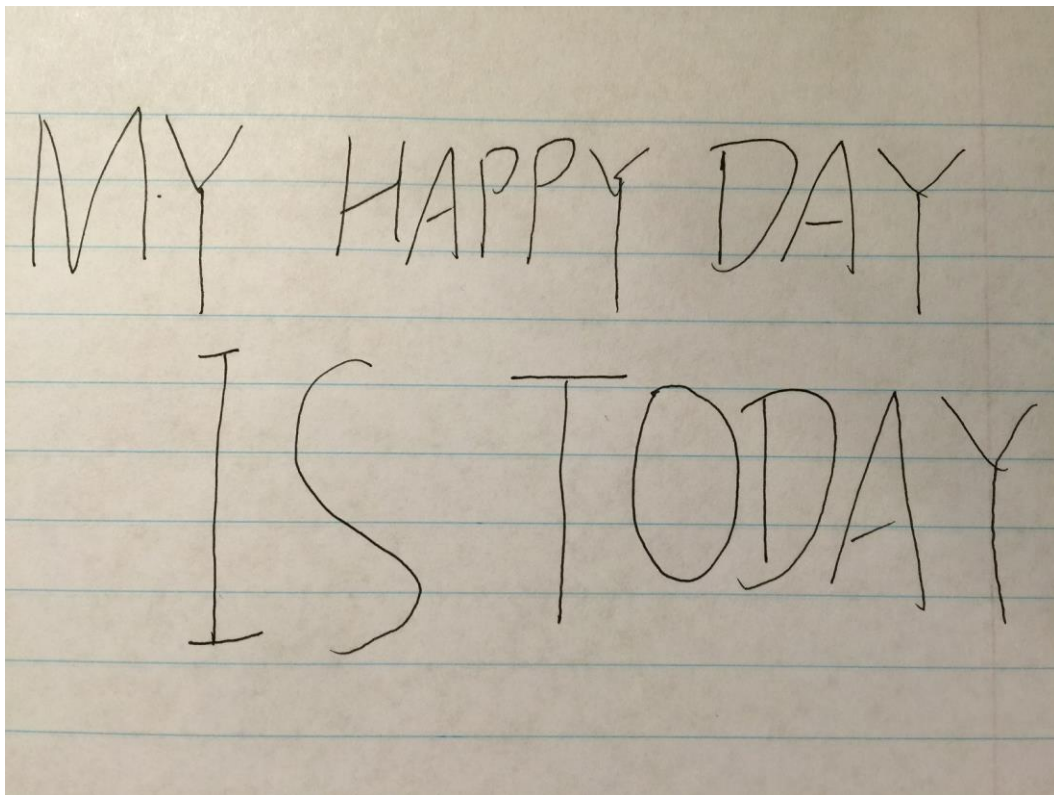 MY HAPPY DAY
IS TODAY